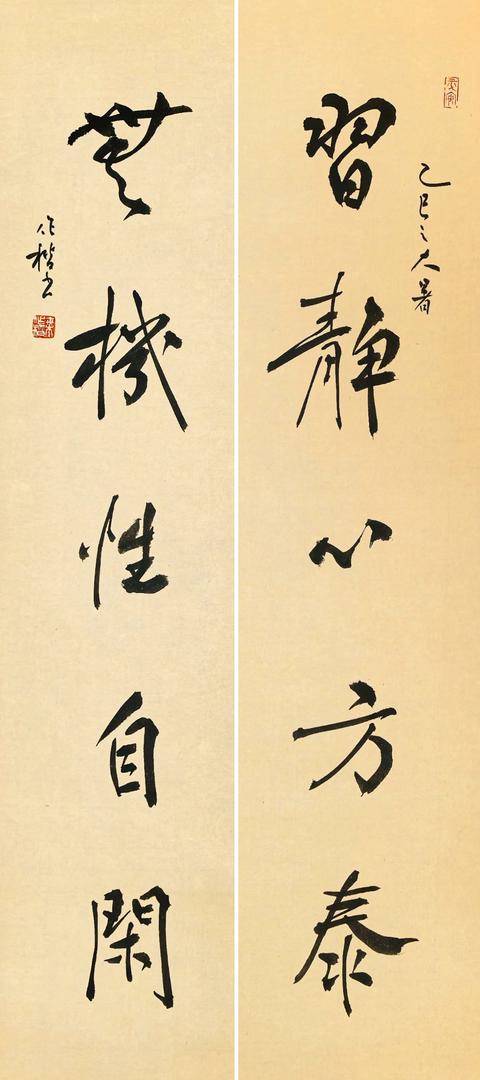 乙巳之大暑
習靜心方泰
無機性自閑
作楷書